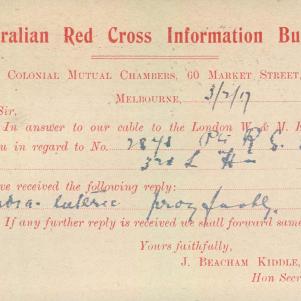 ralian Red Cross Information Bu
Colonial Mutual Chambers, 60 Market Street,
Melbourne, 3/2/17
Sir,
In answer to our cable to the London W. & M. 
u in regard to No. 2873 Pte R. G.
3rd L H
ve received the following reply:
enteric
If any further reply is received we shall forward same
Yours faithfully,
J. Beacham Kiddle,
Hon Secr